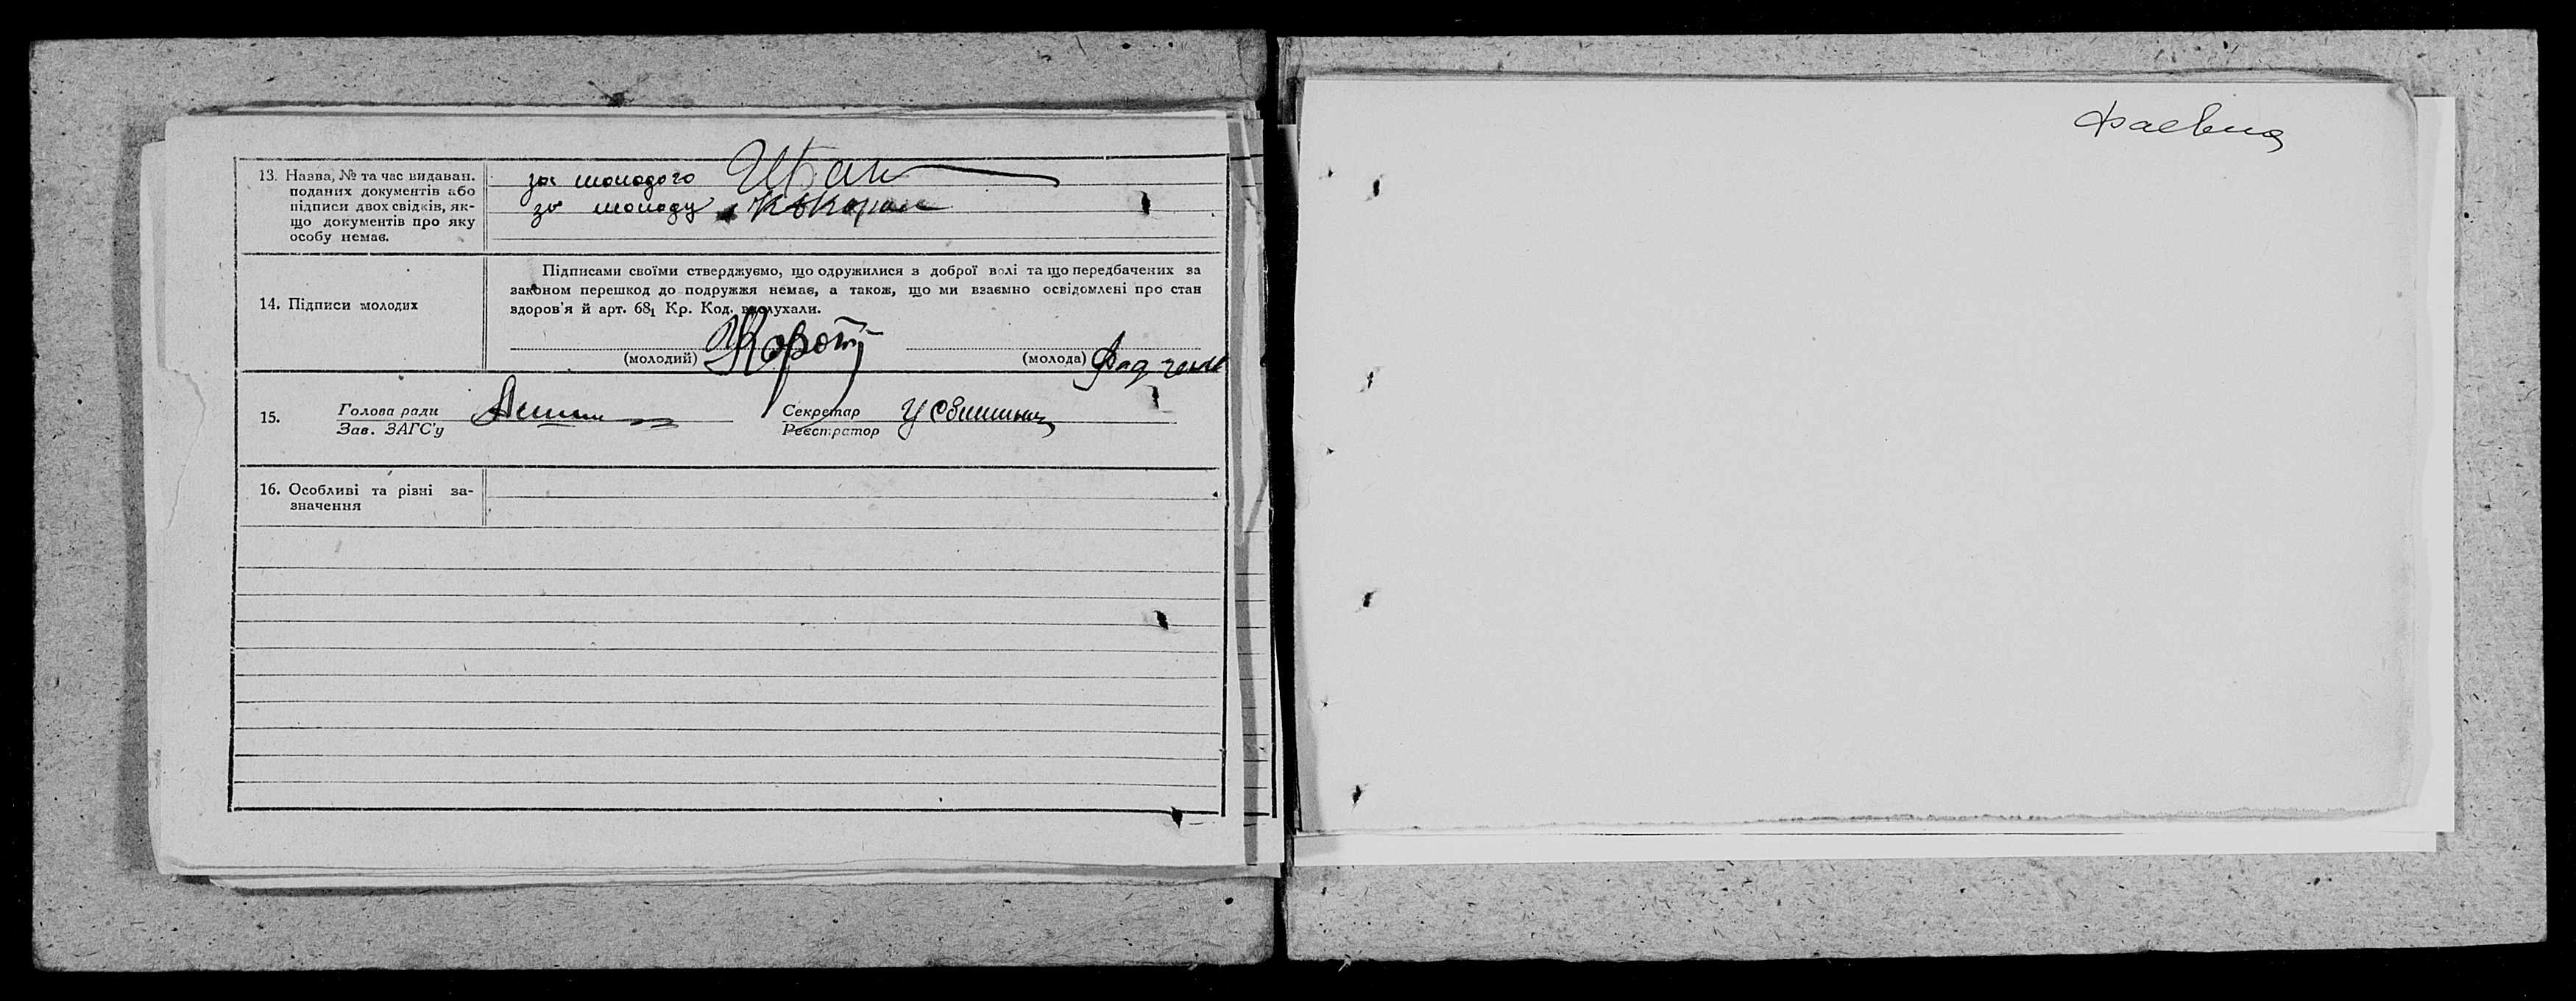 13. Назва, № та час видаван.
поданих документів або
підписи двох свідків, як-
що документів про яку
особу немає.
за молодого Иван
за молоду
14. Підписи молодих
Підписами своїми стверджуємо, що одружилися з доброї волі та що передбачених за
законом перешкод до подружжя немає, а також, що ми взаємно освідомлені про стан
здоров'я й арт. 68₁ Кр. Код. вислухали.
(молодий)
(молода)
15.
Голова ради
Зав. ЗАГС'у
Секретар
Реєстратор
16. Особливі та різні за-
значення